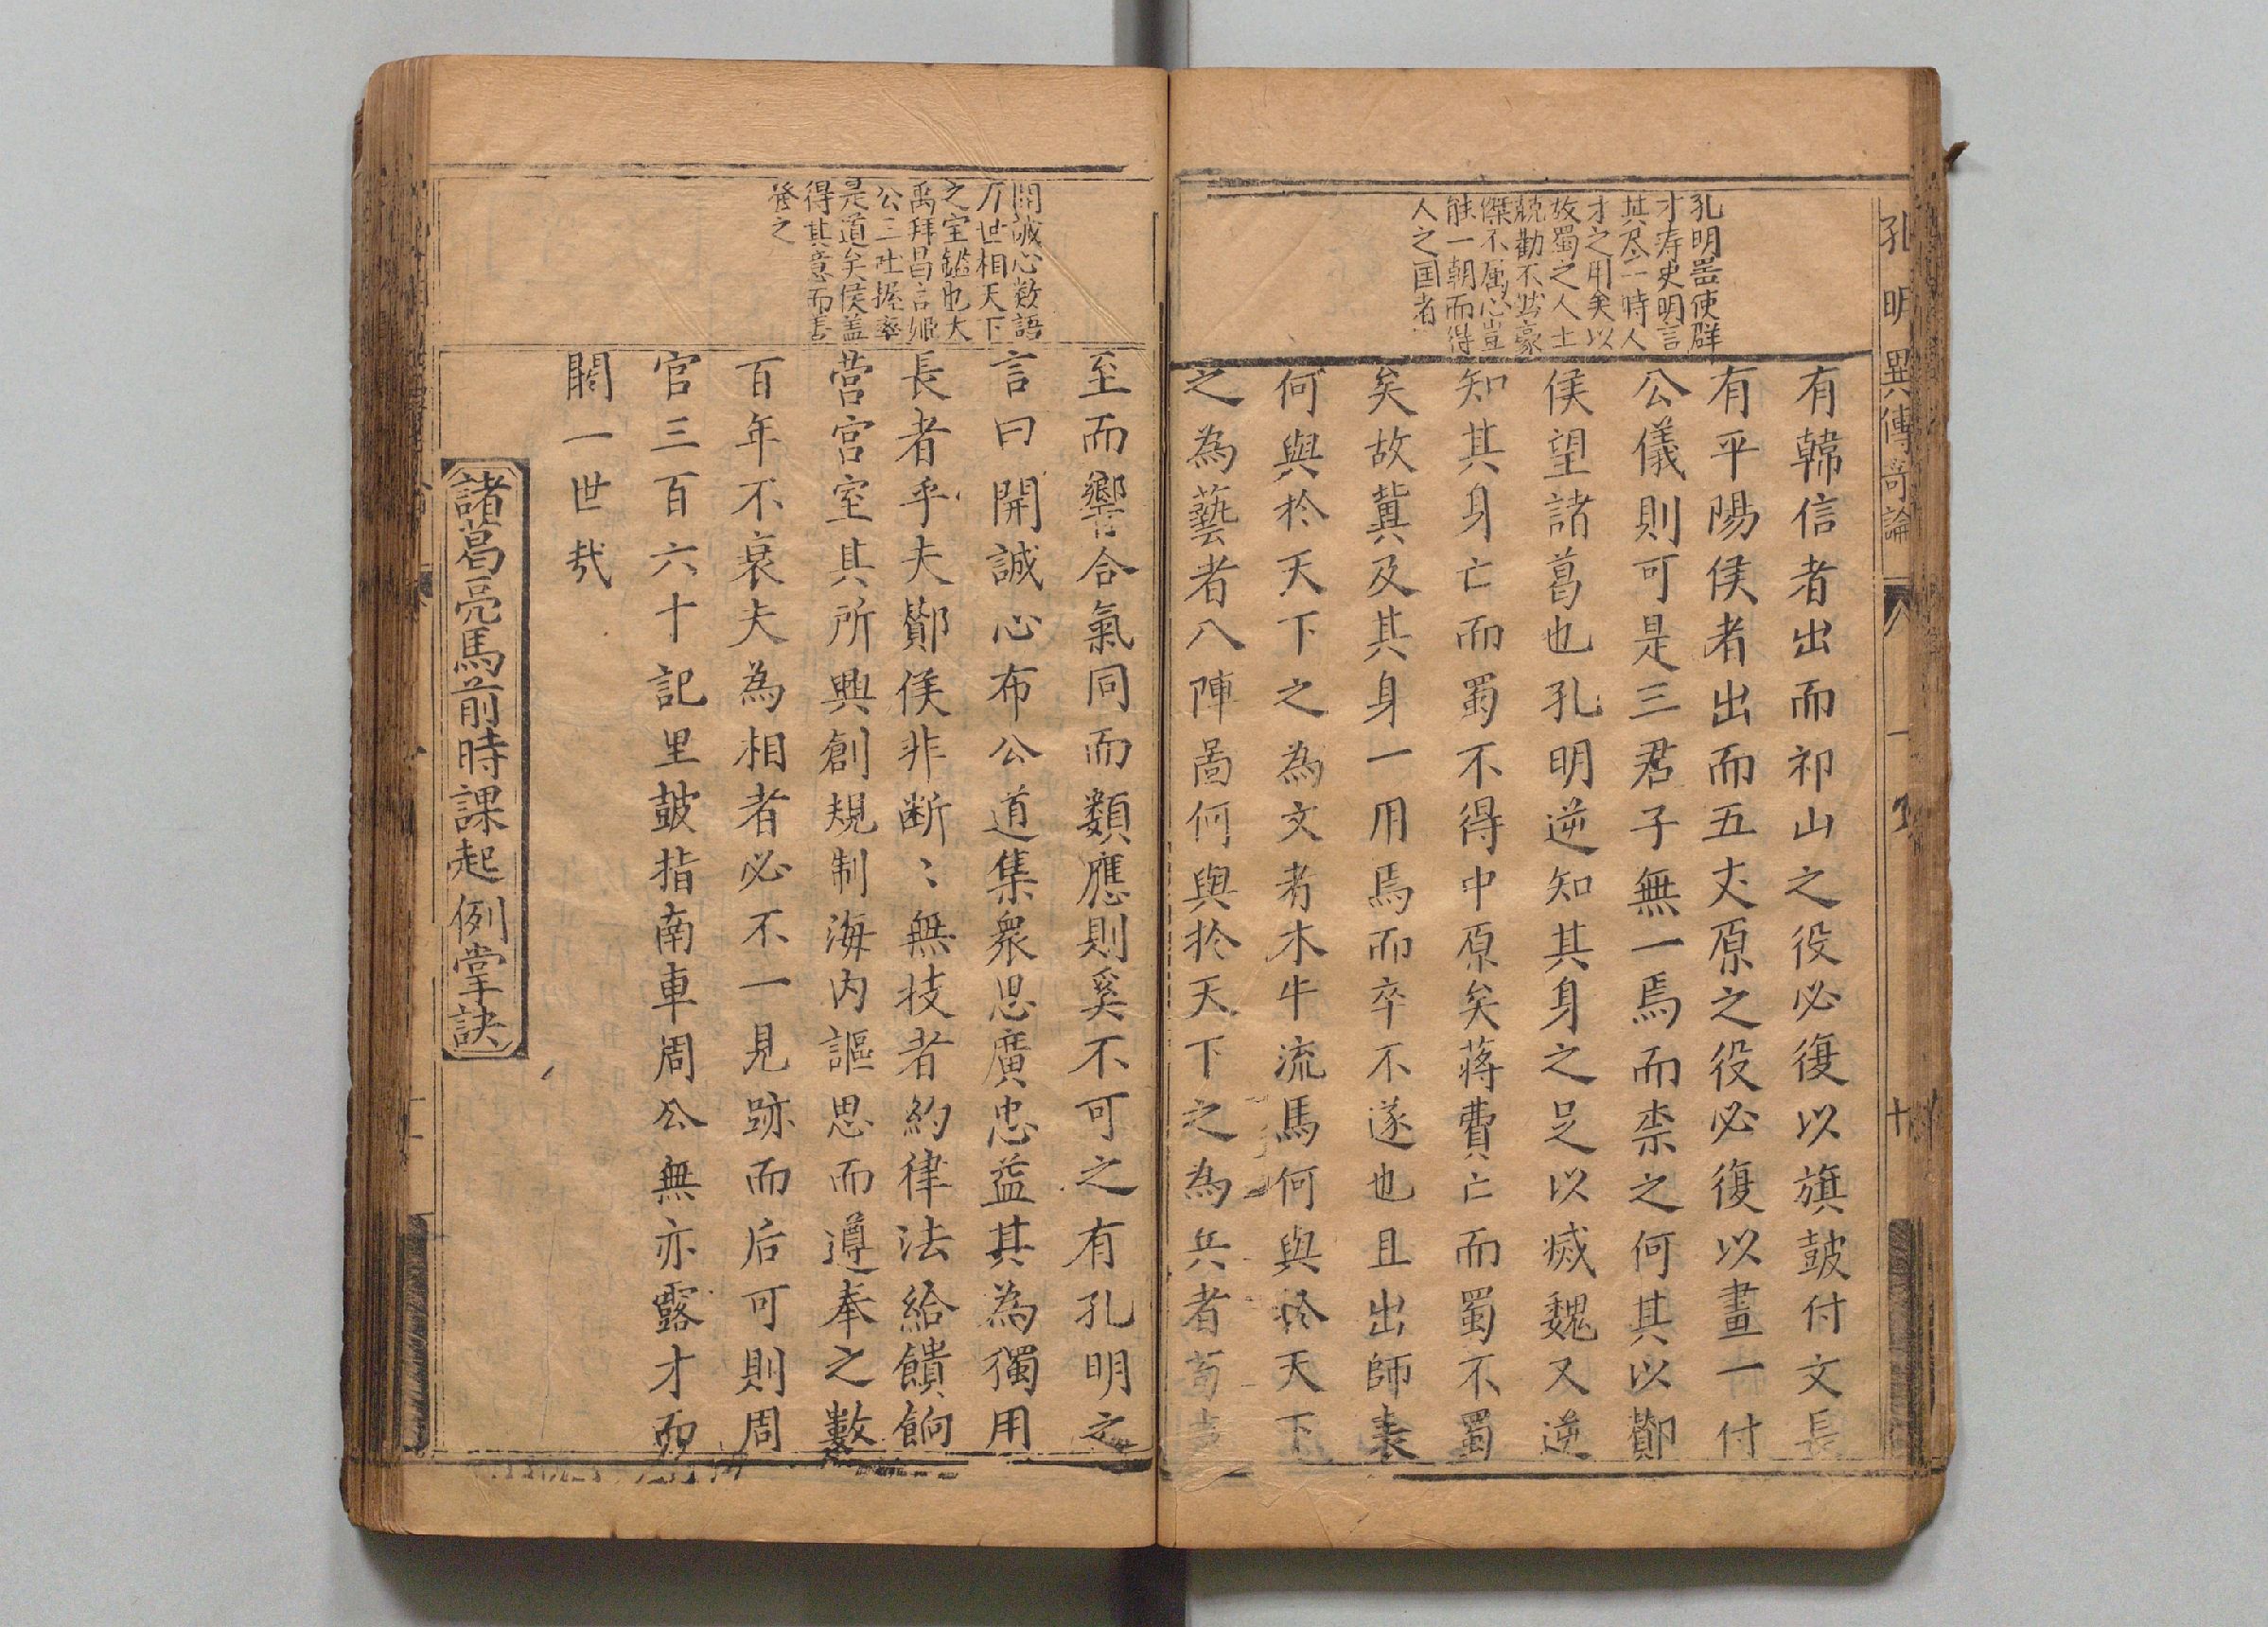 孔明異傳奇論
八
十
孔明器使群
才寿史明言
其尽一時人
才之用矣以
故蜀之人士
競勸不然豪
傑不属心豈
能一朝而得
人之国者
有韓信者出而祁山之役必復以旗鼓付文長
有平陽侯者出而五丈原之役必復以畫一付
公儀則可是三君子無一焉而柰之何其以酇
侯望諸葛也孔明逆知其身之足以滅魏又逆
知其身亡而蜀不得中原矣蒋費亡而蜀不蜀
矣故冀及其身一用焉而卒不遂也且出師表
何與於天下之為文者木牛流馬何與於天下
之為藝者八陣啚何與於天下之為兵者
開誠心数語
万世相天下
之宝鑑也大
禹拜昌言姬
公三吐握率
是道矣侯盖
得其意而善
發之
至而響合氣同而類應則奚不可之有孔明之
言曰開誠心布公道集衆思廣忠益其為獨用
長者乎夫酇侯非断〻無技者約律法給饋餉
營宮室其所興創規制海内謳思而遵奉之數
百年不衰夫為相者必不一見跡而后可則周
官三百六十記里鼓指南車周公無亦露才而
闊一世㢤
諸葛亮馬前時課起例掌訣